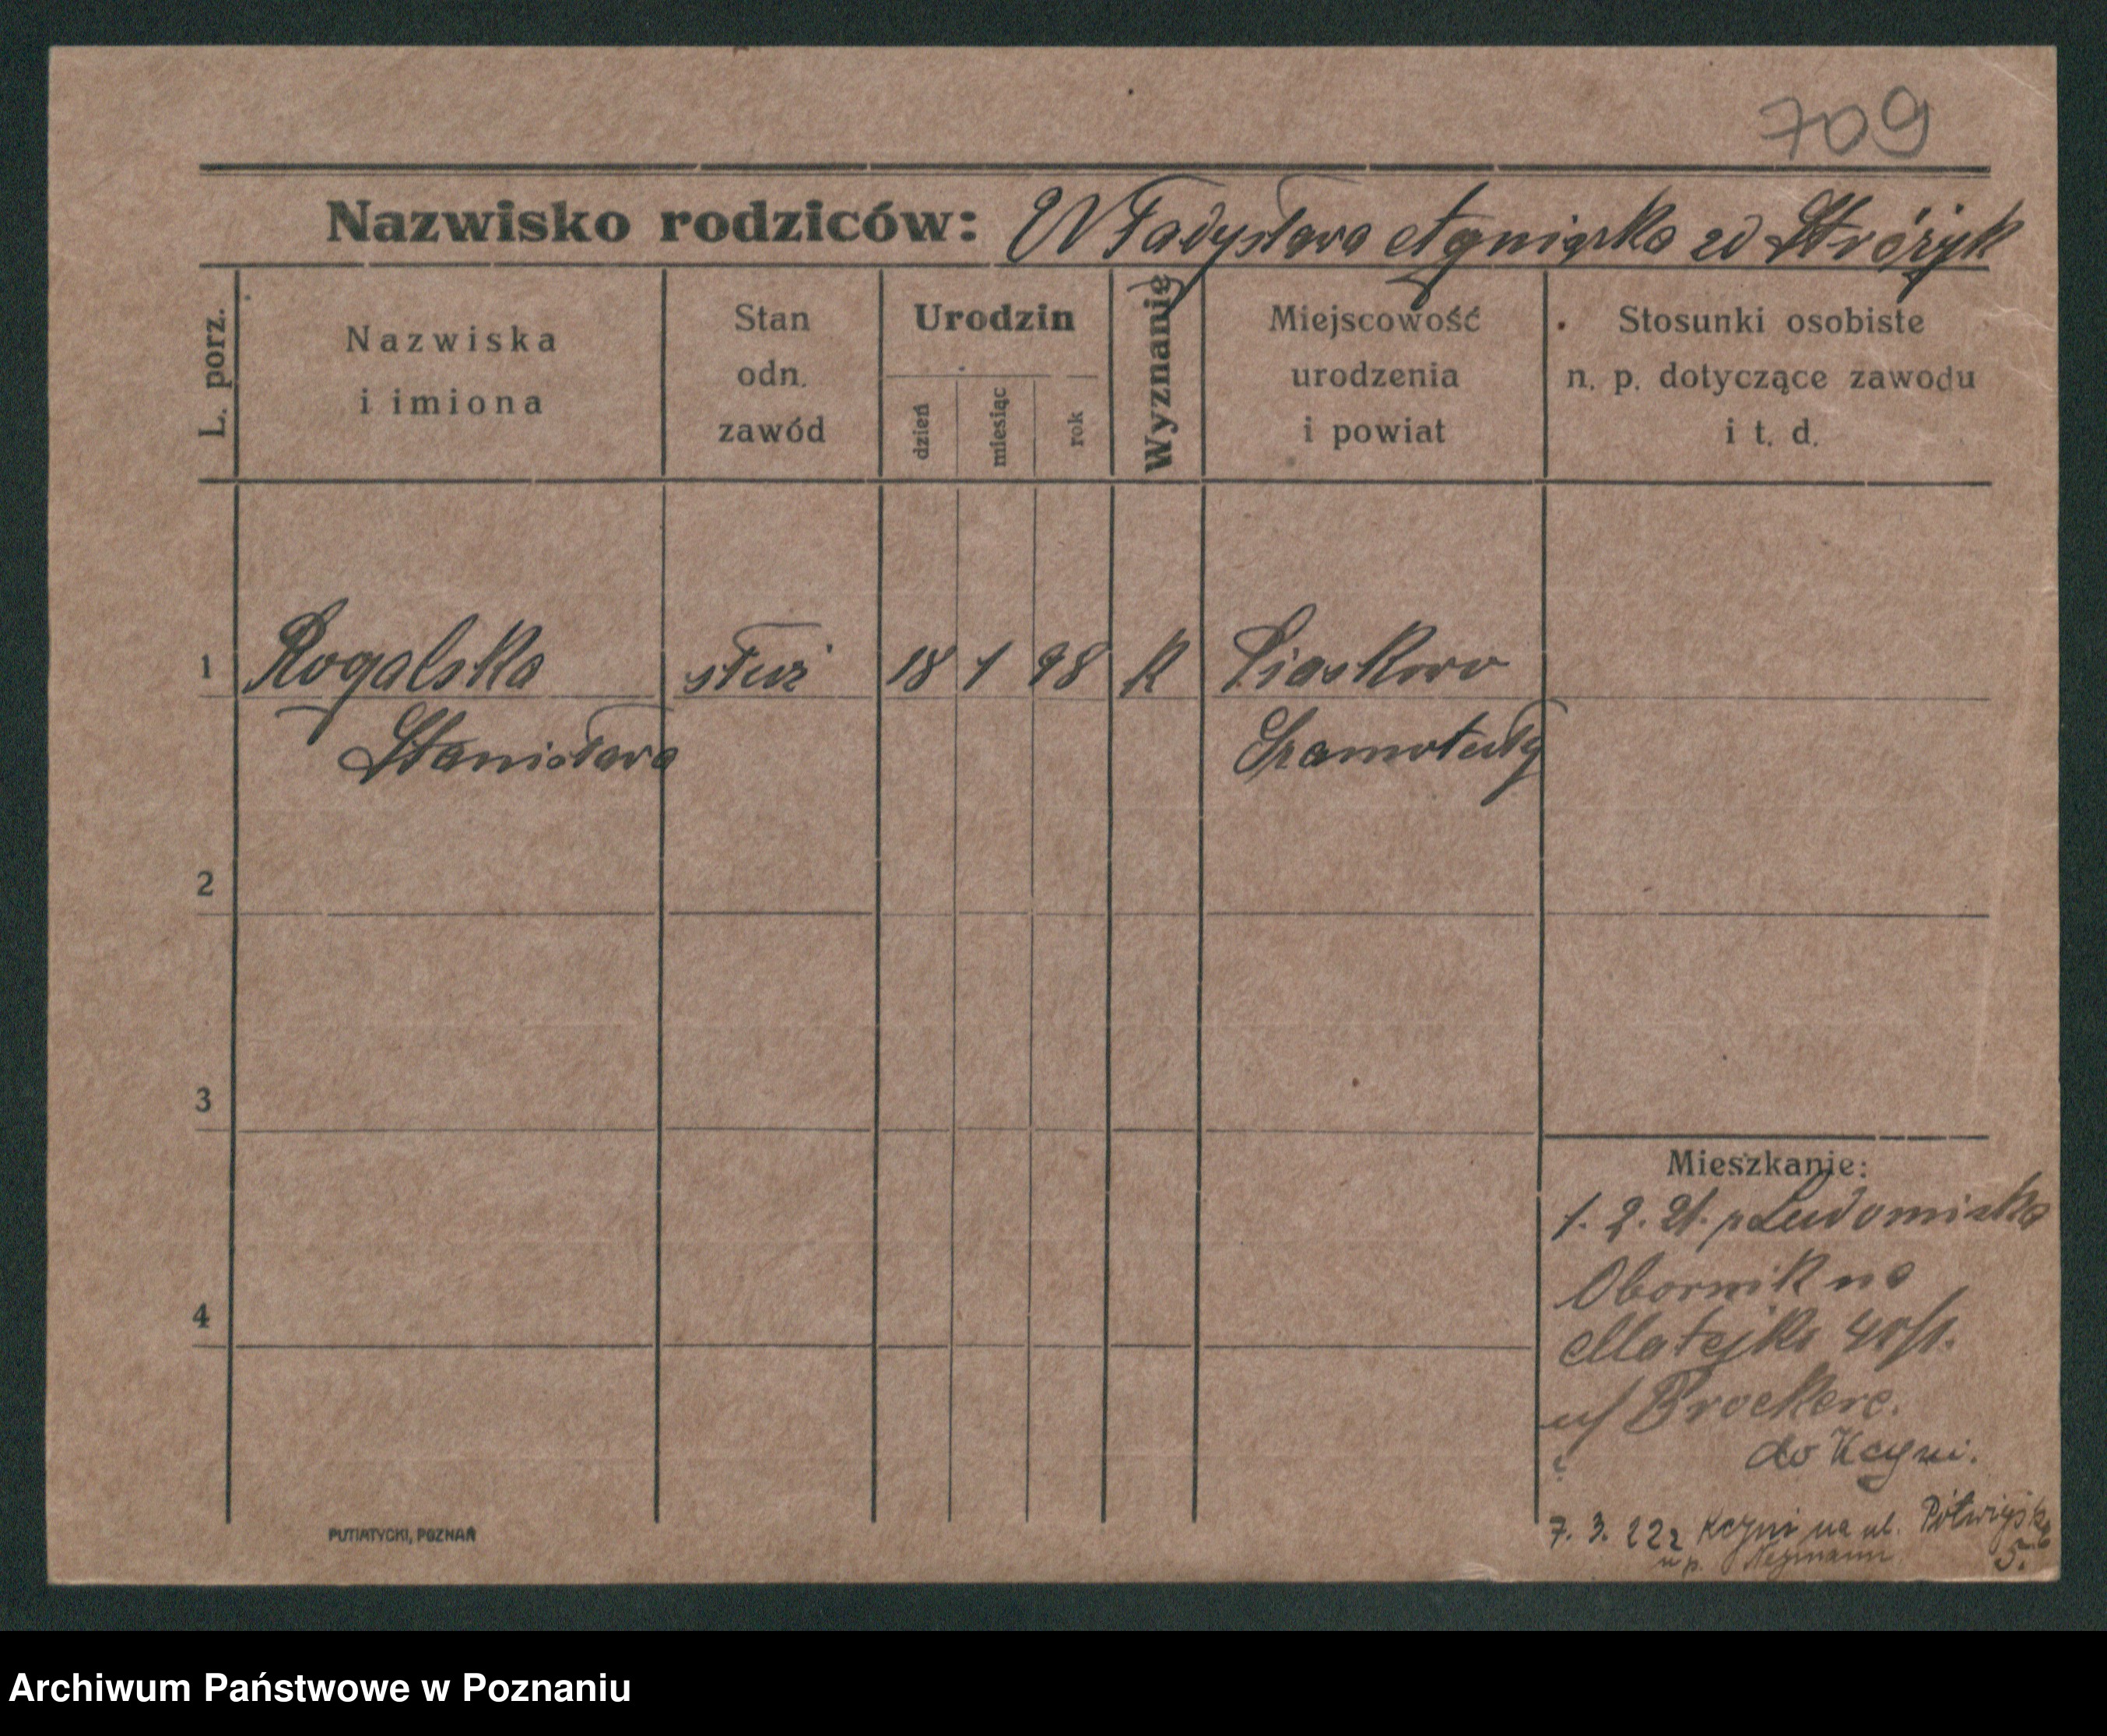 709
Nazwisko rodziców: Władysława Agnieszka zd Stróżyk
L. porz.
Nazwiska
i imiona
Stan
odn.
zawód
Urodzin
dzień
miesiąc
rok
Wyznanie
Miejscowość
urodzenia
i powiat
Stosunki osobiste
n. p. dotyczące zawodu
i t. d.
1 Rogalska służ 18 1 98 k Piaskowo
Stanisława Szamotuły
2
3
4
Mieszkanie:
1. 2. 21. Ludomiska
Obornik na
Matejki 40/1.
u/ Brockere.
do Kcyni.
7. 3. 22 z Kcyni na ul. Półwiejska
u p. Neymann 5.
PUTIATYCKI, POZNAŃ
Archiwum Państwowe w Poznaniu